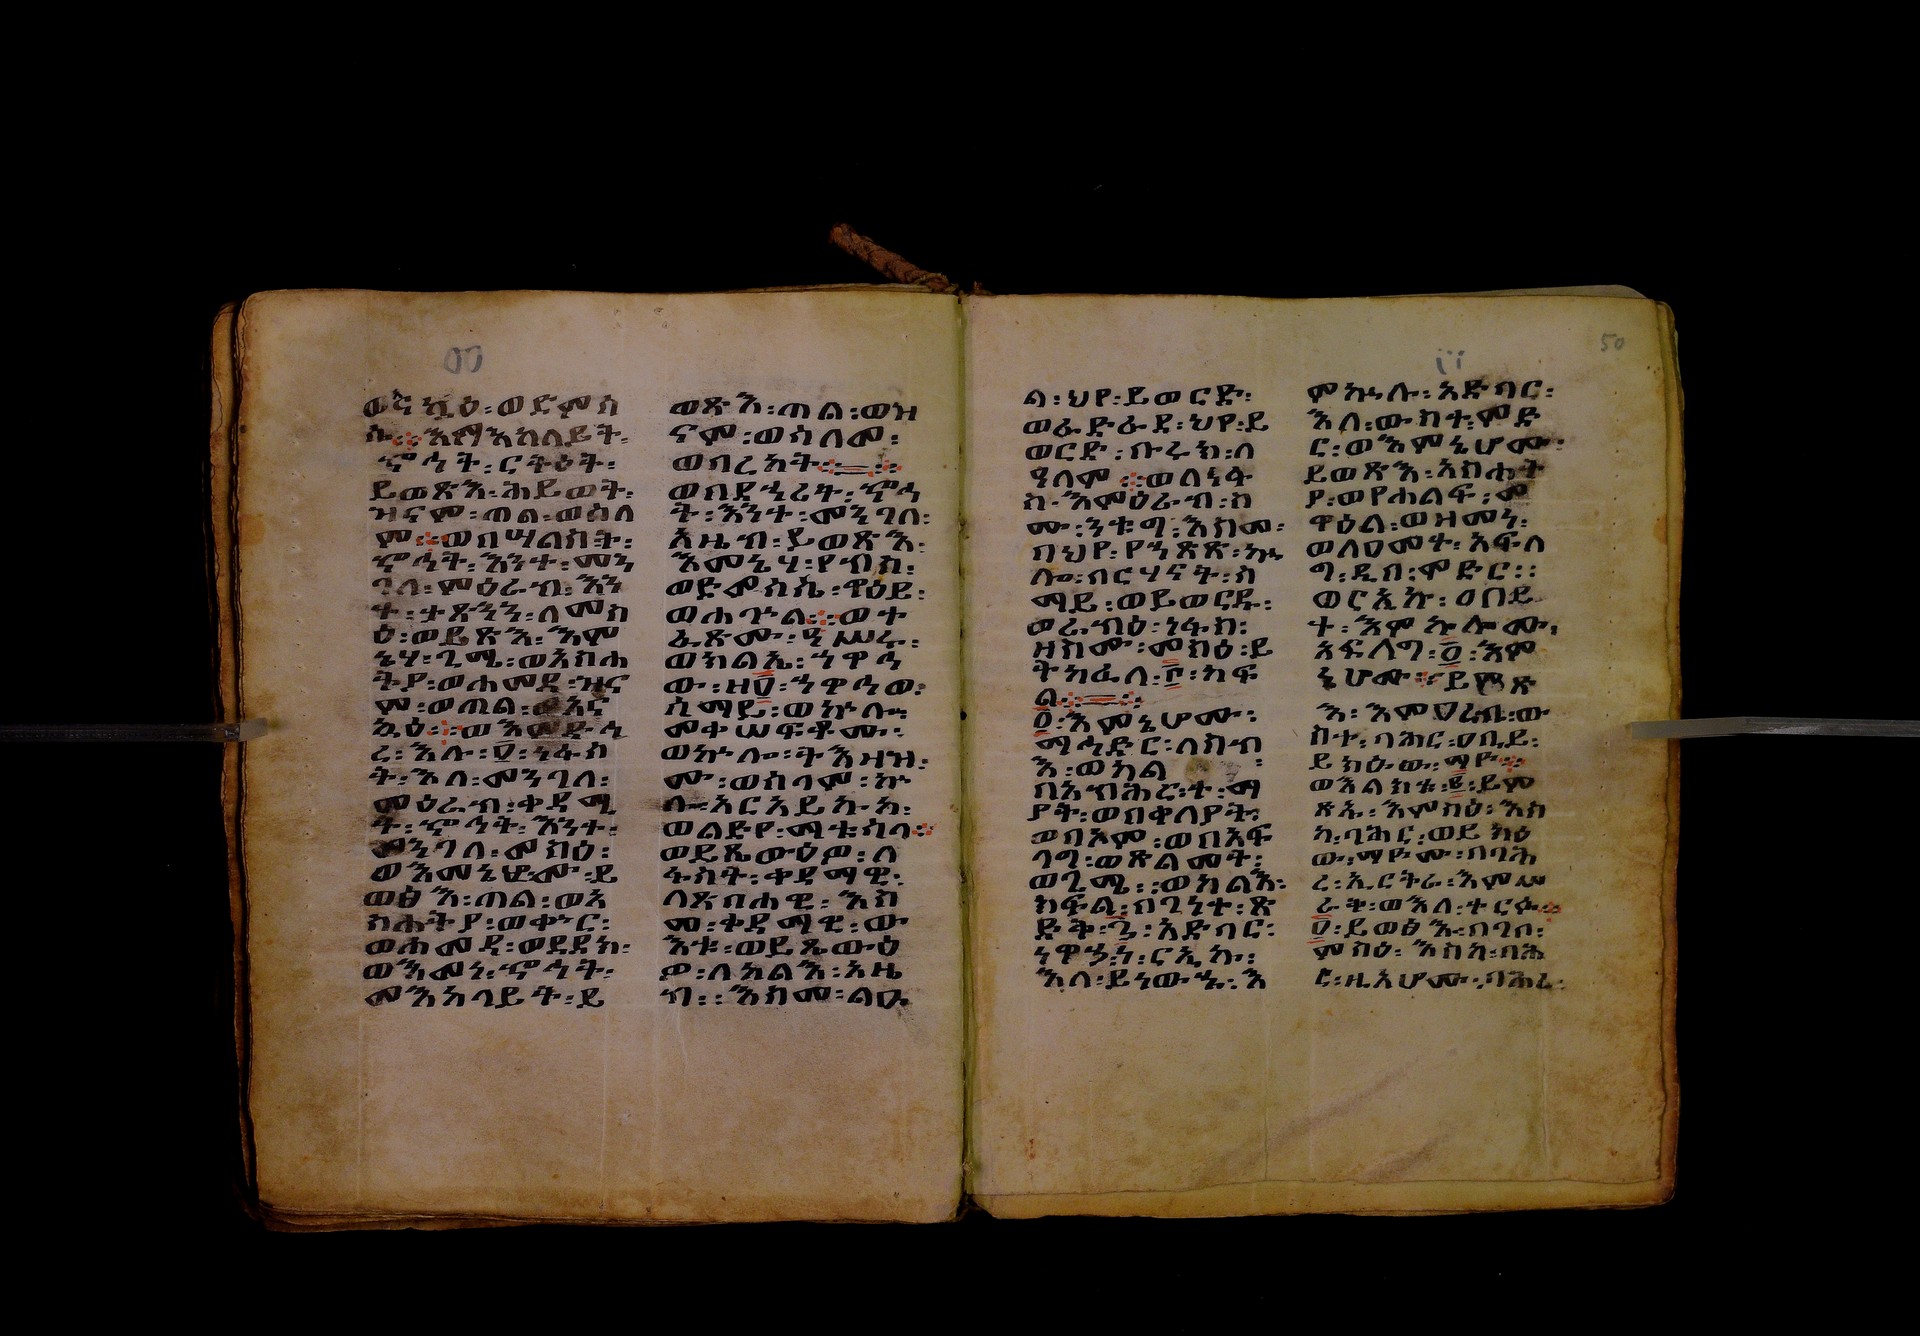 ኳዕ፡ወድምሳ
ሴ፡፡እማእከለይት፡
ኆኅት፡ርትዕት፡
ይወጽእ፡ሕይወት፡
ዝናም፡ጠል፡ወሰላ
ም፡፡ወበሣልስት፡
ኆኅት፡እንተ፡መን
ገለ፡ምዕራብ፡እን
ተ፡ታጸንን፡ለመስ
ዕ፡ወይጽእ፡እም
ኔሃ፡ጊሜ፡ወአስሐ
ትያ፡ወሐመዳ፡ዝና
ም፡ወጠል፡ወአና
ኳዕ፡፡ወእምድኅ
ረ፡እሉ፡፬፡ነፋሳ
ት፡እለ፡መንገለ፡
መዕራብ፡ቀዳሚ
ት፡ኆኅት፡እንተ፡
መንገለ፡መስዕ፡
ወእመኔሆሙ፡ይ
ወፅእ፡ጠል፡ወአ
ስሐትያ፡ወቍር፡
ወሐመዳ፡ወደደክ፡
ወእመነ፡ኆኅት፡
መእከላይት፡ይ
ወጽእ፡ጠል፡ወዝ
ናም፡ወሰላመ፡
ወበረከት፡፡
ወበደኃሪት፡ኆኅ
ት፡እንተ፡መንገለ፡
አዜብ፡ይወጽእ፡
እመኔሃ፡የብስ፡
ወድምሳሴ፡ዋዕይ፡
ወሐጕል፡፡ወተ
ፈጽሙ፡፲ሠሩ፡
ወክልኤ፡ኀዋኅ
ው፡ዘ፬፡ኀዋኅወ፡
ሰማይ፡ወኵሎ፡
መቀሠፍቶሙ፡
ወኵሎ፡ትእዛዝ፡
ሙ፡ወሰላም፡ኵ
ሎ፡አርአይኩከ፡
ወልድየ፡ማቱሳላ፡፡
ወይጼውዕዎ፡ለ
ፋስት፡ቀዳማዊ፡
ላጽባሐዊ፡እስ
መ፡ቀዳማዊ፡ው
እቱ፡ወይጼውዕ
ዎ፡ለካልእ፡አዜ
ብ፡፡እስመ፡ልዑ
ል፡ህየ፡ይወርድ፡
ወፈድፋደ፡ህየ፡ይ
ወርድ፡ቡሩክ፡ለ
ዓለም፡፡ወለነፋት
ስ፡እምዕራብ፡ስ
ሙ፡ንቱግ፡እስመ፡
በህየ፡የኀጽጽ፡ኵ
ሎ፡ብርሃናት፡ሰ
ማይ፡ወይወርዱ፡
ወራብዕ፡ነፋስ፡
ዘስሙ፡መስዕ፡ይ
ትካፈለ፡፫፡ክፍ
ል፡፡
፩፡እምኔሆሙ፡
ማኅደር፡ለሰብ
እ፡ወካል
በአብሕረ፡ተ፡ማ
ያት፡ወበቀላያት፡
ወበኦም፡ወበአፍ
ላግ፡ወጽልመት፡
ወጊሜ፡፡ወካልእ፡
ክፍል፡በገነተ፡ጽ
ድቅ፡፯፡አድባር፡
ነዋኃነ፡ርኢኩ፡
እለ፡ይነውኁ፡እ
ምኵሉ፡አድባር፡
እለ፡ውስተ፡ምድ
ር፡ወእምኔሆሙ፡
ይወጽእ፡አስሐት
ያ፡ወየሐልፍ፡መ
ዋዕል፡ወዘመን፡
ወለዐመት፡አፍላ
ግ፡ዲበ፡ምድር፡፡
ወርኢኩ፡ዐበይ
ተ፡እምኵሎሙ፡
አፍላግ፡፩፡እም
ኔሆሙ፡፡ይመጽ
እ፡እምዐረብ፡ው
ስተ፡ባሕር፡ዐቢይ፡
ይክዑው፡ማየ፡፡
ወእልክቱ፡፪፡ይም
ጽኡ፡እምስዕ፡እስ
ከ፡ባሕር፡ወይክዕ
ው፡ማዮሙ፡በባሕ
ረ፡ኤርትራ፡እምሠ
ራቅ፡ወእለ፡ተርፉ፡፡
፬፡ይወፅእ፡በገበ፡
ምስዕ፡እስከ፡ባሕ
ር፡ዚአሆሙ፡ባሕረ፡
50